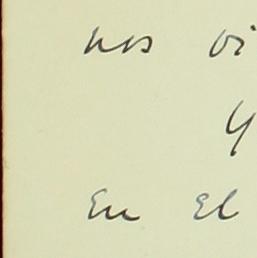 nos vi
y
En el